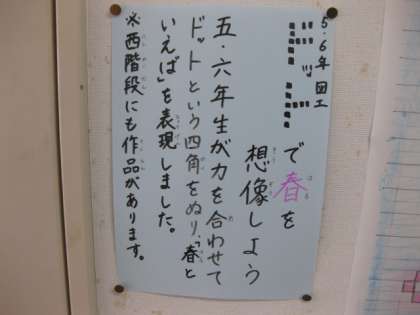 5.6年 図工
ドットで春を
想像しよう
五・六年生が力を合わせて
ドットという四角をぬり、「春と
いえば」を表現しました。
※西階段にも作品があります。